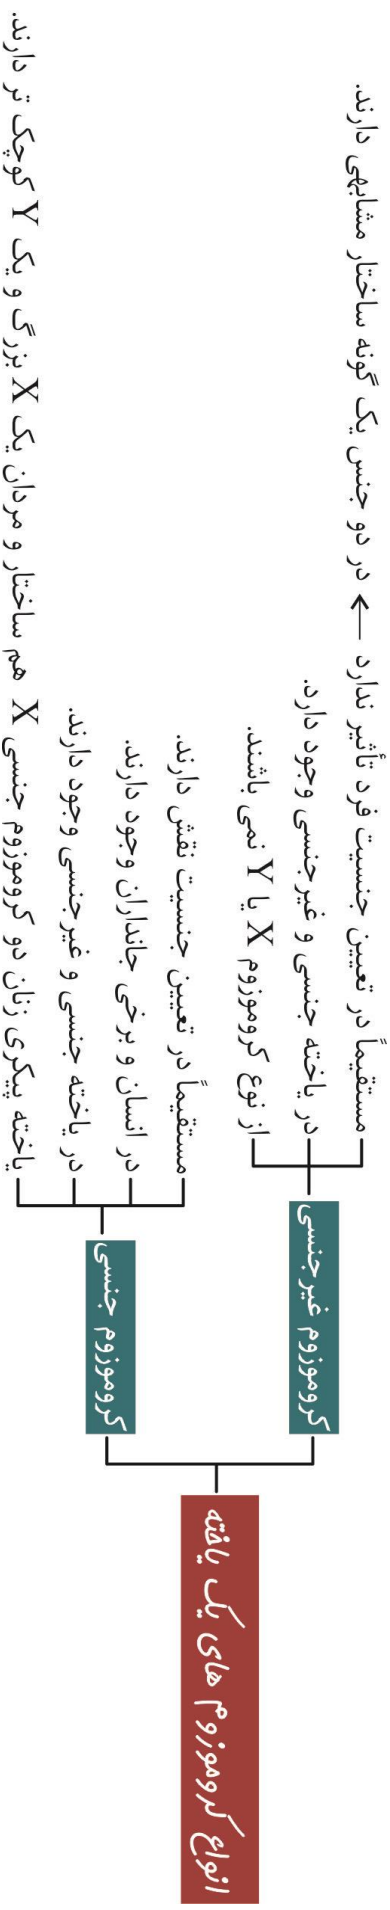 انواع کروموزوم های یک یاخته
کروموزوم غیرجنسی
مستقیماً در تعیین جنسیت فرد تأثیر ندارد ← در دو جنس یک گونه ساختار مشابهی دارند.
در یاخته جنسی و غیرجنسی وجود دارد.
از نوع کروموزوم X یا Y نمی باشند.
کروموزوم جنسی
مستقیماً در تعیین جنسیت نقش دارند.
در انسان و برخی جانداران وجود دارند.
در یاخته جنسی و غیرجنسی وجود دارند.
یاخته پیکری زنان دو کروموزوم جنسی X هم ساختار و مردان یک X بزرگ و یک Y کوچک تر دارند.